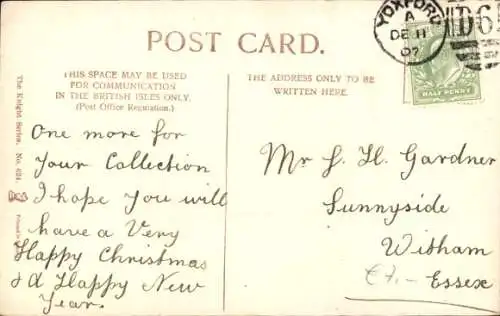 POST CARD.
THIS SPACE MAY BE USED
FOR COMMUNICATION
IN THE BRITISH ISLES ONLY.
(Post Office Regulation.)
THE ADDRESS ONLY TO BE
WRITTEN HERE.
YOXFORD
A
DE 11
07
D6
HALF PENNY
The Knight Series. No. 624
One more for
Your Collection
I hope You will
have a Very
Happy Christmas
& Happy New
Year.
Mr H. Gardner
Sunnyside
Witham
Essex